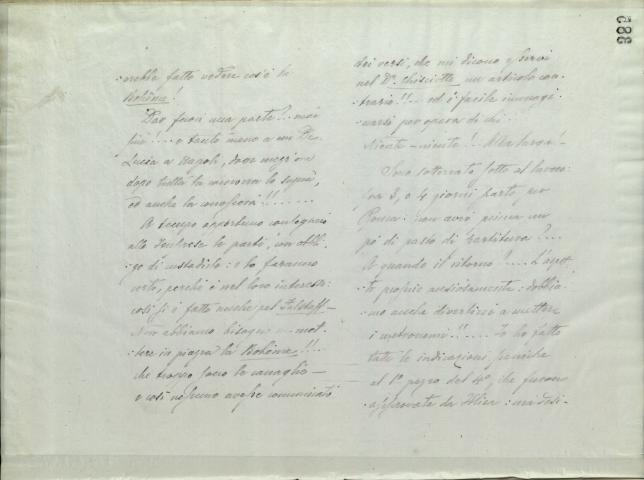 :rebbe fatto vedere cos'è la
Bohème!
Dar fuori una parte?.. mai
più!... e tanto meno a un De
Lucia a Napoli, dove
dopo tutta la lo saprà,
ed anche la conoscerà!!......
A tempo opportuno consegnerò
alla le parti, con obbli:
:go di custodirle: e lo faranno
certo, perchè è nel loro interesse:
così si è fatto anche pel Falstaff—
Non abbiamo bisogno di met:
:tere in piazza la Bohème!!...
che troppe sono le canaglie—
e così nessuno avesse cominciato
888
dei versi, che mi dicono esservi
nel D. Chisciotte un articolo con:
:trario!!... ed è facile immagi:
:narsi per opera di chi:
Niente—niente!! Alla larga!—
Sono sotterrato sotto al lavoro:
fra 3, o 4 giorni parto per
: non avrò prima un
pò di resto di partitura?...
A quando il ritorno?.... L'aspet:
:to proprio ansiosamente: dobbia:
:mo anche divertirci a mettere
i metronomi!!..... Io ho fatto
tutte le indicazioni sceniche
al 1º pezzo del 4º, che furono
approvate da Illica: ma desi: